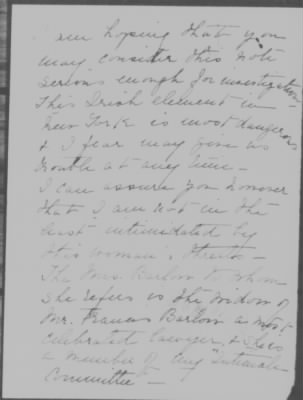 I am hoping that you
may consider this note
serious enough for investigation.
This Irish element in
New York is most dangerous
& I fear may give us
trouble at any time —
I can assure you however
that I am not in the
least intimidated by
this woman's threats —
The Mrs. Barlow to whom
she refers is the widow of
Mr. Francis Barlow a most
celebrated lawyer, & she is
a member of my "Intimate
Committee" —